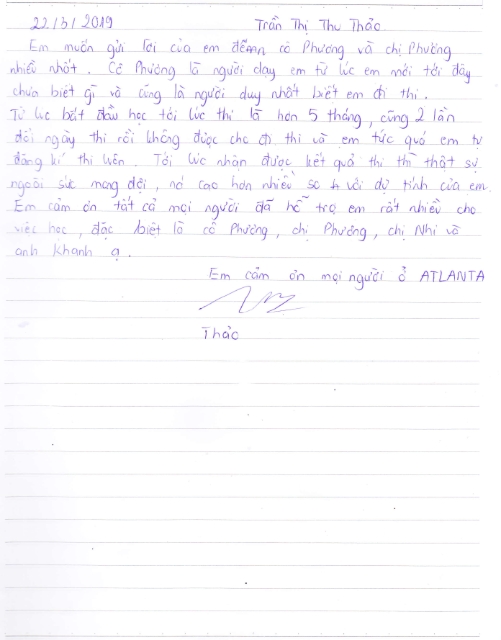 22/3/2019 Trần Thị Thu Thảo
Em muốn gửi lời của em đến cô Phương và chị Phường
nhiều nhất. Cô Phương là người dạy em từ lúc em mới tới đây
chưa biết gì và cũng là người duy nhất biết em đi thi.
Từ lúc bắt đầu học tới lúc thi là hơn 5 tháng, cũng 2 lần
dời ngày thi rồi không được cho đi thi và em tức quá em tự
đăng kí thi luôn. Tới lúc nhận được kết quả thi thì thật sự
ngoài sức mong đợi, nó cao hơn nhiều so với dự tính của em.
Em cảm ơn tất cả mọi người đã hỗ trợ em rất nhiều cho
việc học, đặc biệt là cô Phương, chị Phương, chị Nhi và
anh Khanh ạ.
Em cảm ơn mọi người ở ATLANTA
Thảo